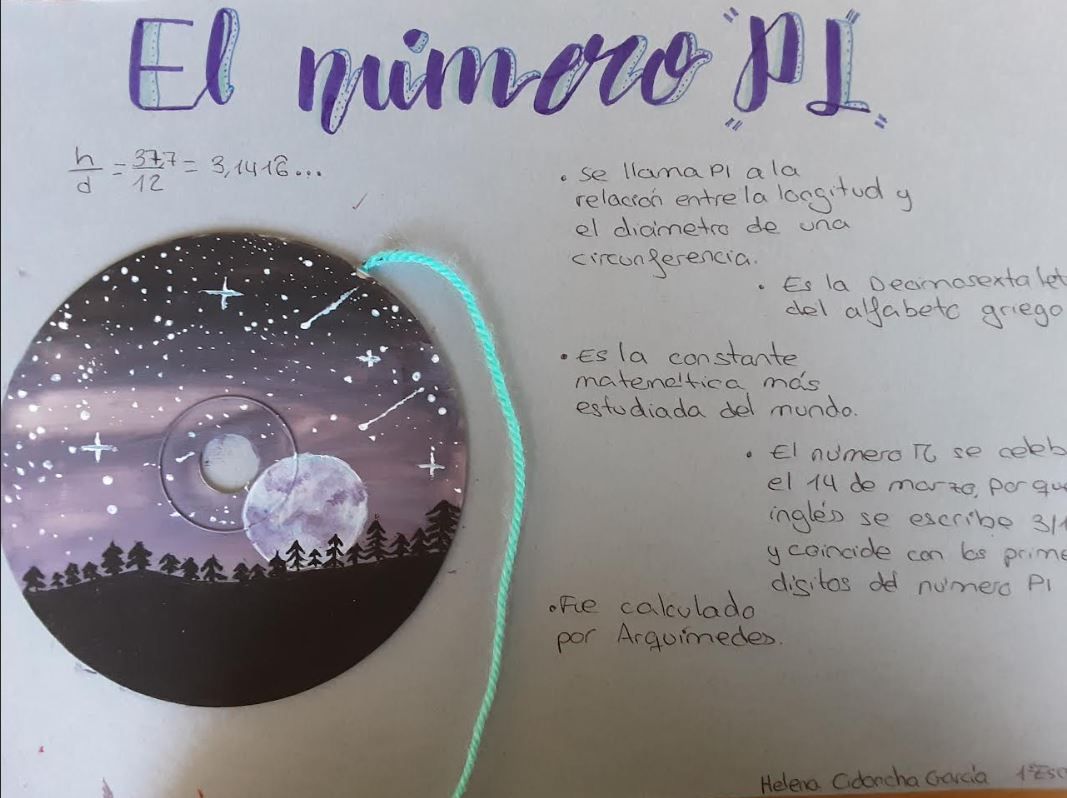 El número "PI"
h/d = 37,7/12 = 3,1416...
• se llama PI a la
relación entre la longitud y
el diámetro de una
circunferencia.
• Es la Decimosexta let
del alfabeto griego
• Es la constante
matemática más
estudiada del mundo.
• El número π se celeb
el 14 de marzo, porque
inglés se escribe 3/1
y coincide con los prime
dígitos del número PI
• Fue calculado
por Arquímedes.
Helena Cidoncha García 1º Eso